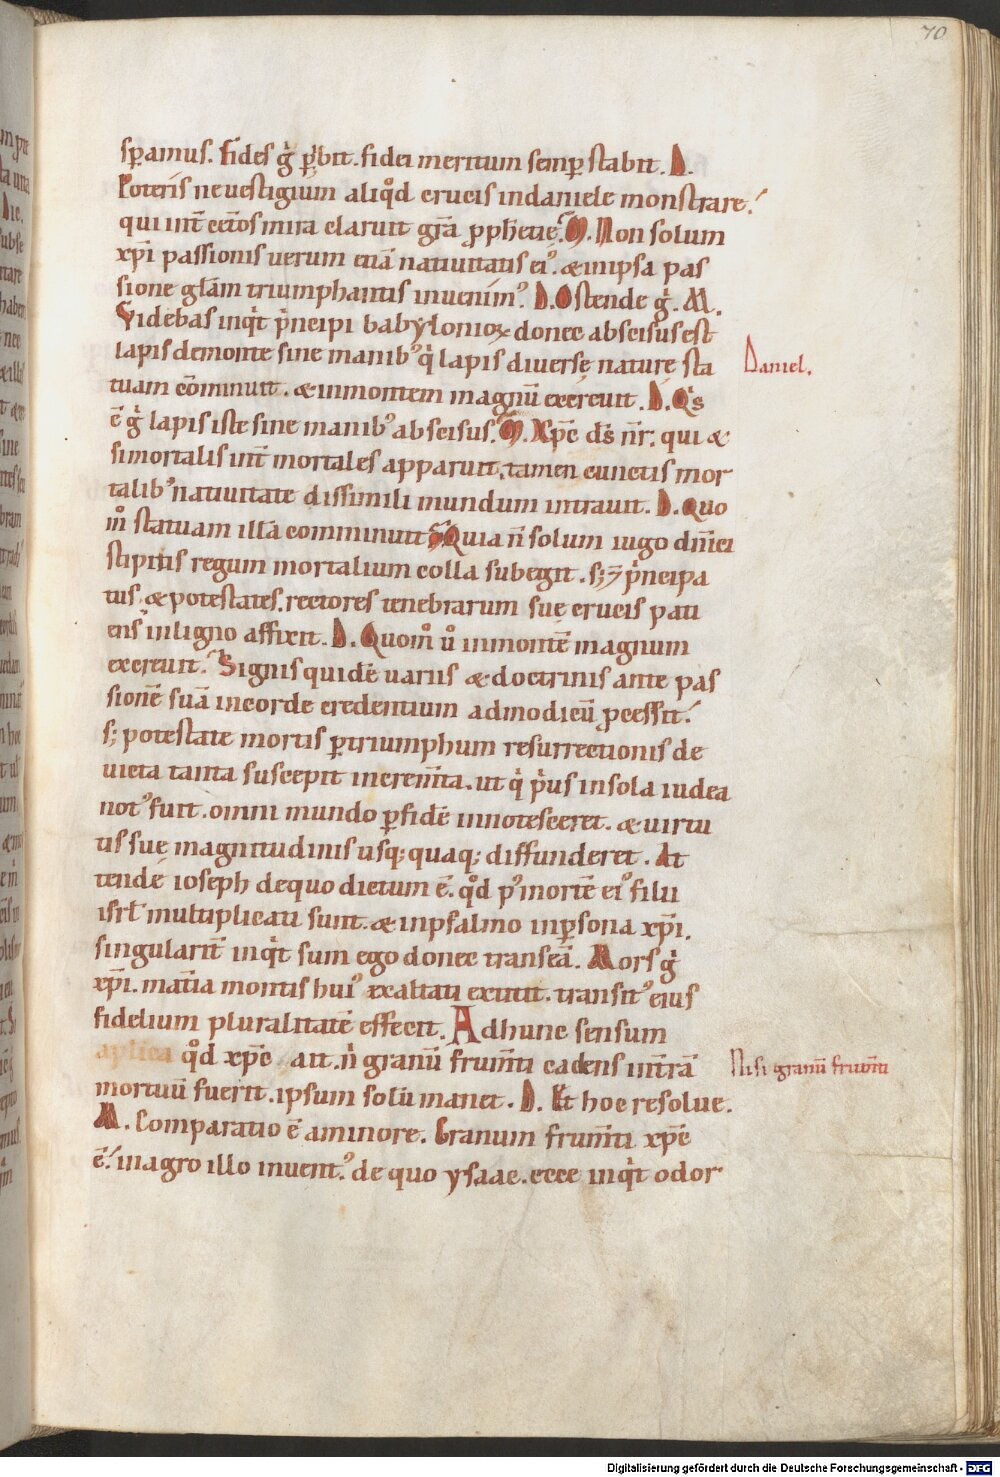 70
sp̄amus. Fides g̊ p̄ibit. fidei meritum semp̄ stabit. D.
Poteris ne vestigium aliq̊d crucis indaniele monstrare.
qui int̄ cet̄os mira claruit gr̄a ꝓph̄etie. M. Non solum
xp̄i passionis uerum etiā natiuitatis eiꝰ. & inipsa pas
sione gl̄am triumphantis inuenimꝰ. D. Ostende g̊. M.
Videbas inqͥt pͥncipi babylonioꝝ donec abscisus est
lapis demonte sine manibꝰ qͥ lapis diuerse nature sta
tuam cōminuit. & inmontem magnū excreuit. D. Qͥs
ē g̊ lapis iste sine manibꝰ abscisus. M. Xp̄c ds̄ nr̄. qui &
simortalis int̄ mortales apparuit. tamen cunctis mor
talibꝰ natiuitate dissimili mundum intrauit. D. Quo
m̊ statuam illā comminuit. M. Quia n̄ solum iugo dn̄ici
stipitis regum mortalium colla subegit. s; ⁊ pͥncipa
tus. & potestates. rectores tenebrarum sue crucis pati
ens inligno affixit. D. Quom̊ ů inmontē magnum
excreuit. Signis quidē uariis & doctrinis ante pas
sionē suā incorde credentium admodicū ꝓcessit.
s; potestate mortis ꝑtriumphum resurrectionis de
uicta tanta suscepit increm̄ta. ut qͥ pͥus insola iudea
notꝰ fuit. omni mundo ꝑfidē innotesceret. & uirtu
tis sue magnitudinis usq; quaq; diffunderet. At
tende ioseph dequo dictum ē. q̊d pꝰ mortē eiꝰ filii
isrl̄ multiplicati sunt. & inpsalmo inꝑsona xp̄i.
singularit̄ inqͥt sum ego donec transeā. Mors g̊
xp̄i. mat̄ia montis huiꝰ exaltati extitit. transitꝰ eius
fidelium pluralitatē effecit. Adhunc sensum
aplica q̊d xp̄c ait. nͥ granū frum̄ti cadens int̄rā
mortuū fuerit. ipsum solū manet. D. Et hoc resolue.
M. Comparatio ē aminore. Granum frum̄ti xp̄c
ē. inagro illo inuentꝰ. de quo ysaac. ecce inqͥt odor
Daniel.
Nisi granū frum̄ti
Digitalisierung gefördert durch die Deutsche Forschungsgemeinschaft - DFG